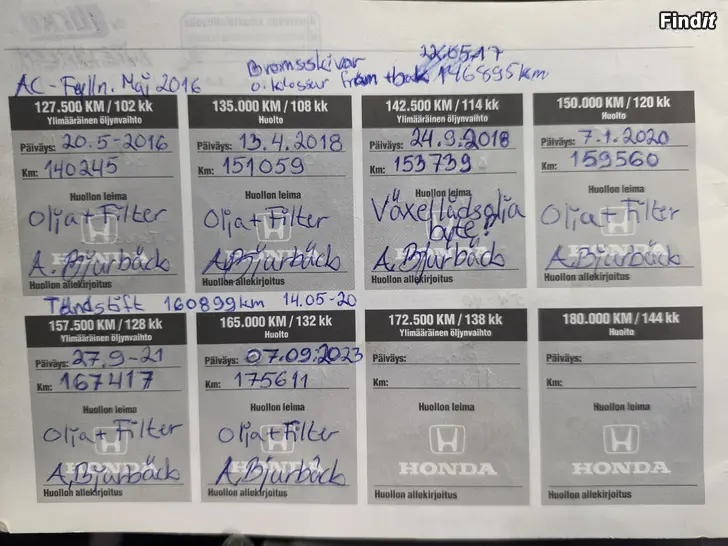 Findit
AC-Fylln. Maj 2016
Bromsskivor 22.05.17
o. klossar fram + bak 146895km
127.500 KM / 102 kk
Ylimääräinen öljynvaihto
Päiväys: 20.5-2016
Km: 140245
Huollon leima
Olja + Filter
HONDA
A. Bjurbäck
Huollon allekirjoitus
135.000 KM / 108 kk
Huolto
Päiväys: 13.4.2018
Km: 151059
Huollon leima
Olja + Filter
HONDA
A, Bjurbäck
Huollon allekirjoitus
142.500 KM / 114 kk
Ylimääräinen öljynvaihto
Päiväys: 24.9.2018
Km: 153739
Huollon leima
Växellådsolja
byte!
HONDA
A, Bjurbäck
Huollon allekirjoitus
150.000 KM / 120 kk
Huolto
Päiväys: 7.1.2020
Km: 159560
Huollon leima
Olja + Filter
HONDA
A, Bjurbäck
Huollon allekirjoitus
Tändstift 160899km 14.05-20
157.500 KM / 128 kk
Ylimääräinen öljynvaihto
Päiväys: 27.9-21
Km: 167417
Huollon leima
Olja + Filter
HONDA
A, Bjurbäck
Huollon allekirjoitus
165.000 KM / 132 kk
Huolto
Päiväys: 07.09.2023
Km: 175611
Huollon leima
Olja + Filter
HONDA
A, Bjurbäck
Huollon allekirjoitus
172.500 KM / 138 kk
Ylimääräinen öljynvaihto
Päiväys:
Km:
Huollon leima
HONDA
Huollon allekirjoitus
180.000 KM / 144 kk
Huolto
Päiväys:
Km:
Huollon leima
HONDA
Huollon allekirjoitus